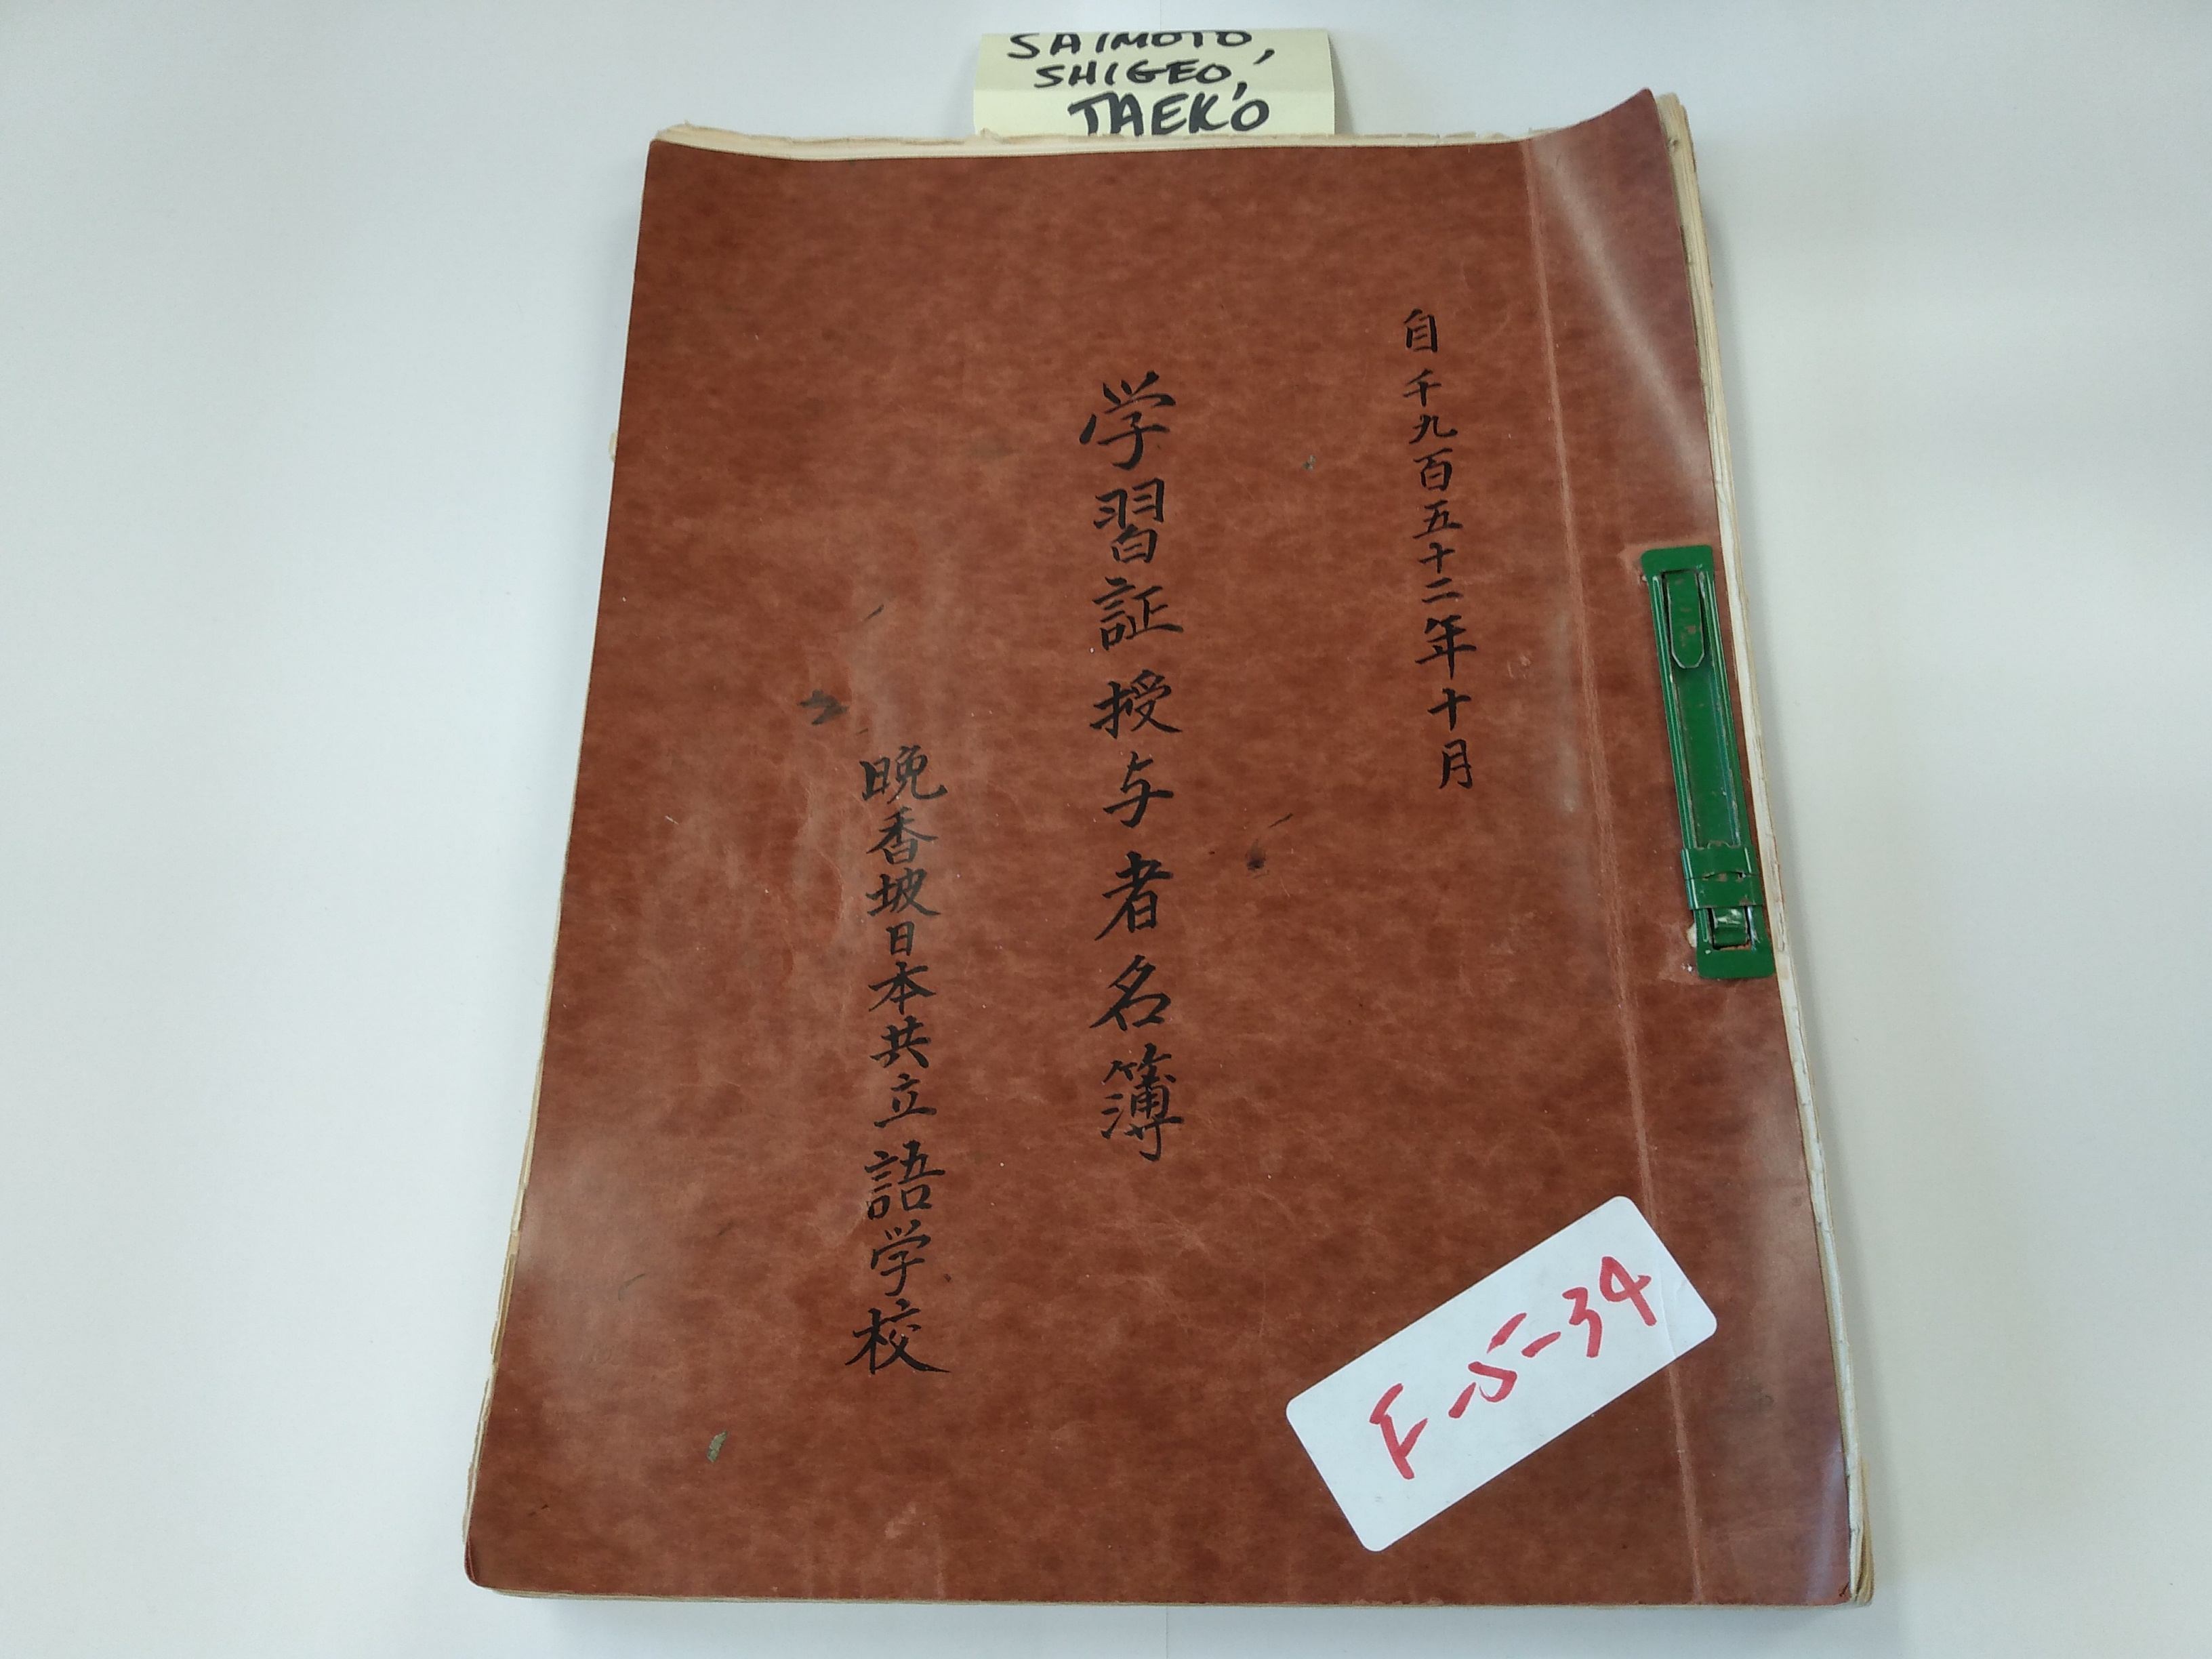 SAIMOTO,
SHIGEO,
TAEKO
自千九百五十二年十月
学習証授与者名簿
晩香坡日本共立語学校
F-5-34